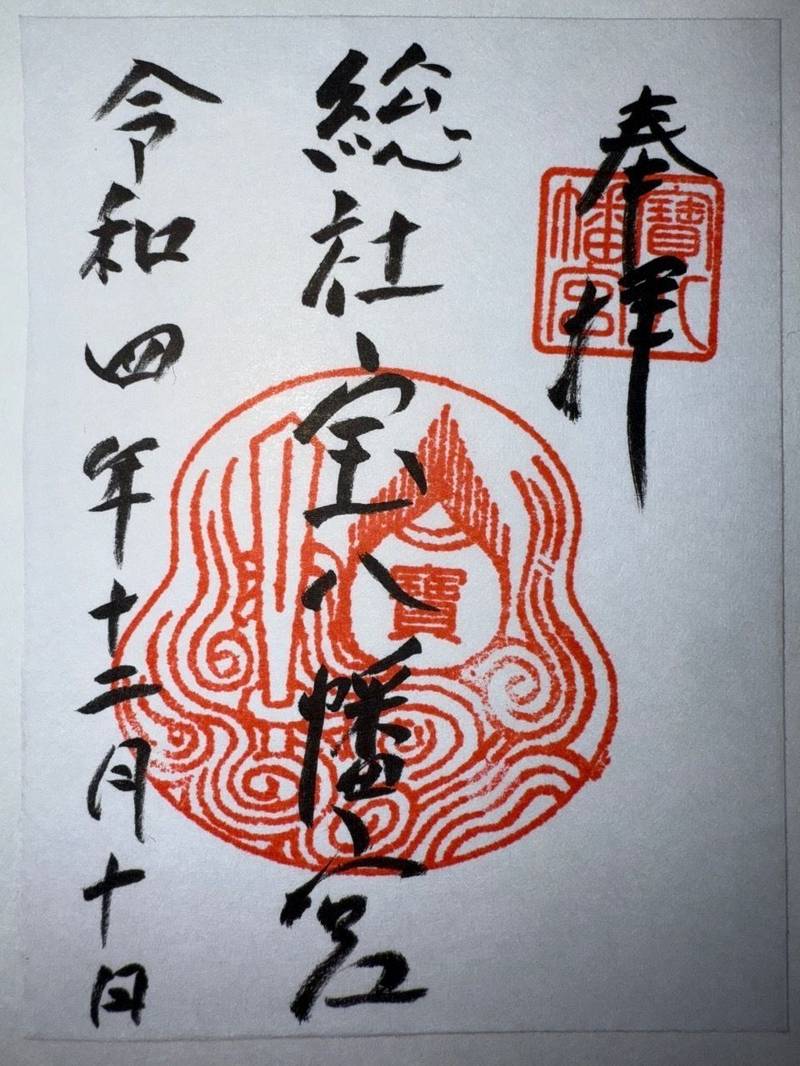 奉拝
寳八
幡宮
総社宝八幡宮
寳
令和四年十二月十日